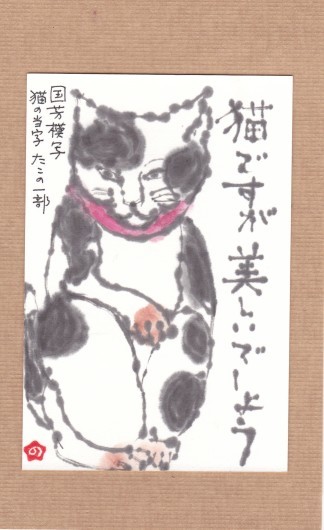 猫ですが美しいでしょう
国芳模写
猫の当字 たこの一部
の